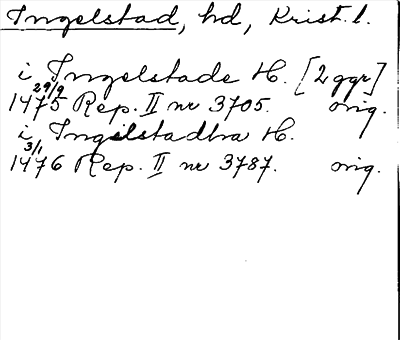 Ingelstad, hd, Krist. l.
i Ingelstade H. [2 ggr]
1475 29/9 Rep. II nr 3705. orig.
i Ingelstadhra H.
1476 3/1 Rep. II nr 3787. orig.